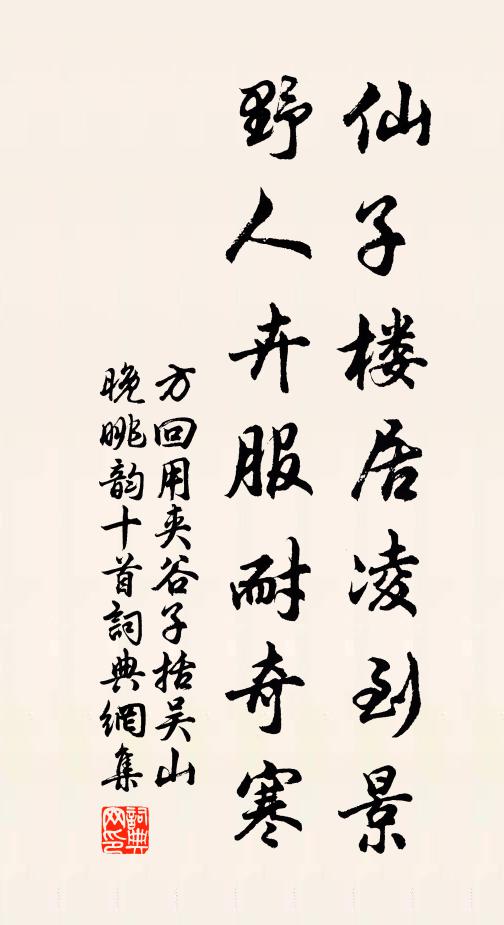 仙子楼居凌到景
野人卉服耐奇寒
方回用夹谷子括吴山
晚眺韵十首詞典網集
詞典
网印